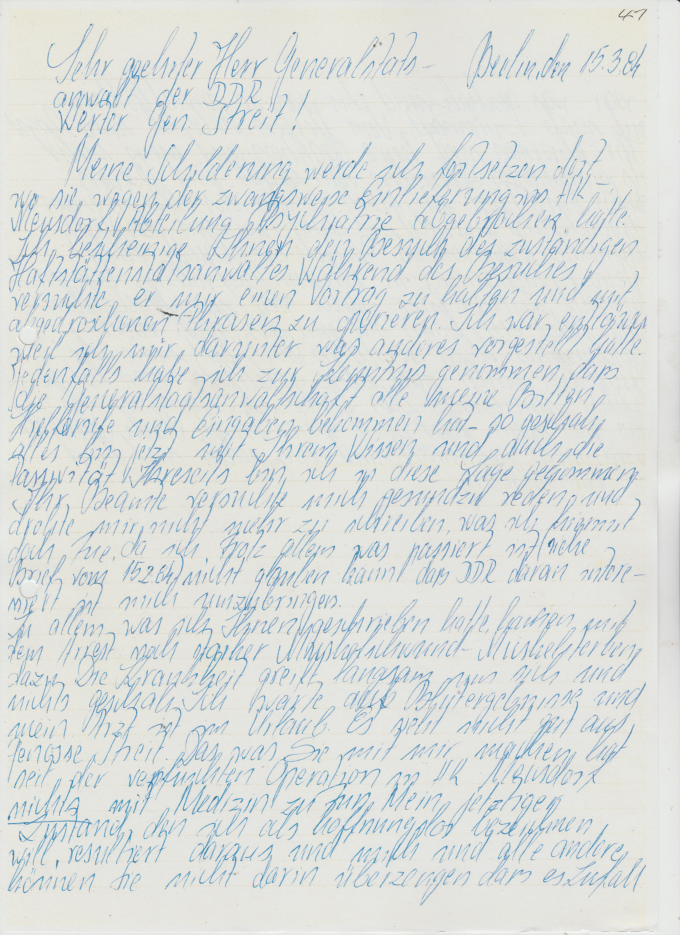 47
Sehr geehrter Herr Generalstaats- Berlin, den 15.3.84
anwalt der DDR
Werter Gen. Streit!
Meine Schilderung werde ich fortsetzen dort,
wo sie wegen der zwangsweise Einlieferung ins HK-
Meusdorf, Abteilung Psychiatrie abgebrochen hatte.
Ich bescheinige Ihnen den Besuch des zuständigen
Haftstättenstaatsanwaltes. Während des Besuches
versuchte er mir einen Vortrag zu halten und mit
abgedroschenen Phrasen zu operieren. Ich war enttäuscht
weil ich mir darunter was anderes vorgestellt hatte.
Jedenfalls habe ich zur Kenntnis genommen, dass
die Generalstaatsanwaltschaft alle meine Bitten,
Hilferufe und Eingaben bekommen hat - so geschah
alles bis jetzt mit Ihrem Wissen und durch die
Passivität Ihrerseits bin ich in diese Lage gekommen.
Ihr Beamte versuchte mich gesundzu reden und
drohte mir nicht mehr zu schreiben, was ich hiermit
doch tue, da ich trotz allem was passiert ist (siehe
Brief vom 15.2.84) nicht glauben kann dass DDR daran intere-
ssiert ist mich umzubringen.
Zu allem, was ich Ihnen geschrieben hatte, kamen mit
dem Arzt noch starker Muskelschwund - Muskelsterben
dazu. Die Krankheit greift langsam um sich und
nichts geschah. Ich warte auf Ergebnisse und
mein Arzt ist im Urlaub. Es sieht nicht gut aus,
Genosse Streit. Das was Sie mit mir machen hat
seit der verfluchten Operation in HK Meusdorf
nichts mit Medizin zu tun. Mein jetziger
Zustand, den ich als hoffnungslos bezeichnen
will, resultiert daraus und mich und alle andere
können Sie nicht darin überzeugen dass es Zufall